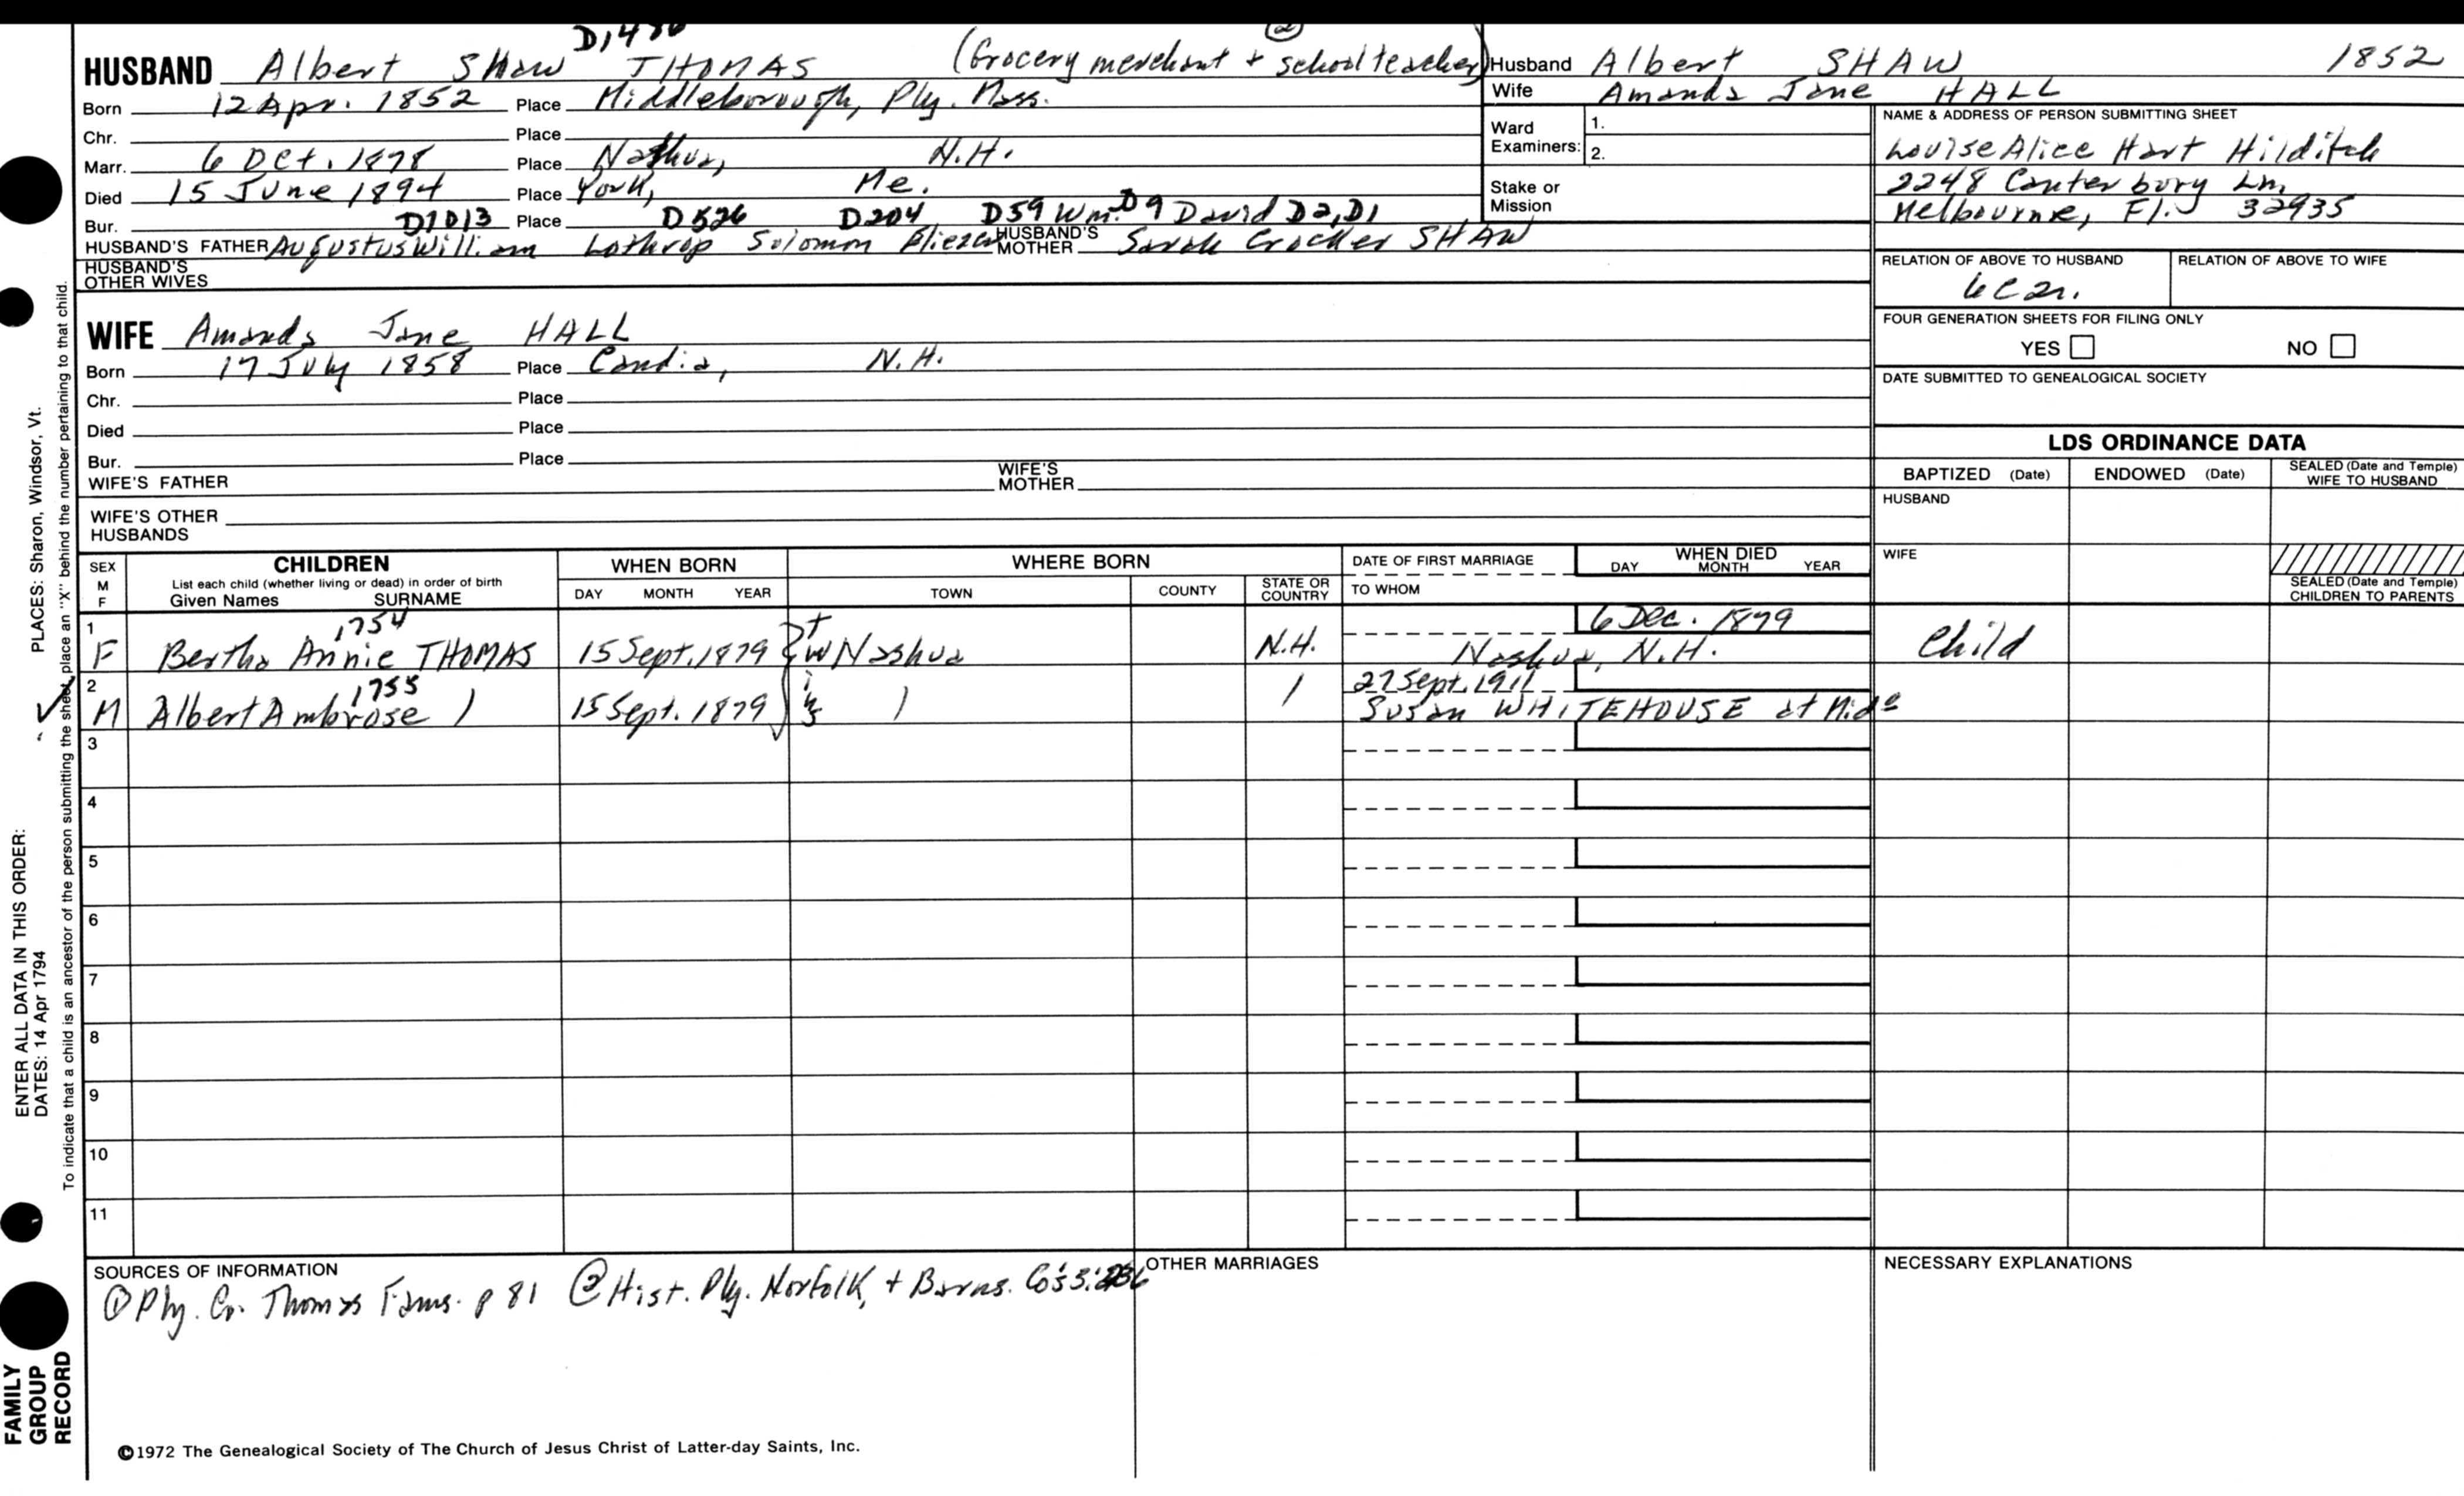 HUSBAND Albert Shaw THOMAS (Grocery merchant + school teacher) ②
Born 12 Apr. 1852 Place Middleborough, Ply. Mass.
Chr. Place
Marr. 6 Oct. 1878 Place Nashua, N.H.
Died 15 June 1894 Place York, Me.
Bur. D1013 Place D526 D204 D59 Wm. D9 David D2, D1
HUSBAND'S FATHER Augustus William Lothrop Solomon Eliezer HUSBAND'S MOTHER Sarah Crocker SHAW
HUSBAND'S OTHER WIVES
WIFE Amanda Jane HALL
Born 17 July 1858 Place Candia, N.H.
Chr. Place
Died Place
Bur. Place
WIFE'S FATHER WIFE'S MOTHER
WIFE'S OTHER HUSBANDS
Husband Albert SHAW 1852
Wife Amanda Jane HALL
Ward Examiners: 1.
2.
Stake or Mission
NAME & ADDRESS OF PERSON SUBMITTING SHEET
Louise Alice Hart Hilditch
2248 Canterbury Ln,
Melbourne, Fl. 32935
RELATION OF ABOVE TO HUSBAND RELATION OF ABOVE TO WIFE
FOUR GENERATION SHEETS FOR FILING ONLY
YES NO
DATE SUBMITTED TO GENEALOGICAL SOCIETY
LDS ORDINANCE DATA
BAPTIZED (Date) ENDOWED (Date) SEALED (Date and Temple) WIFE TO HUSBAND
HUSBAND
WIFE
SEALED (Date and Temple) CHILDREN TO PARENTS
SEX M F CHILDREN WHEN BORN WHERE BORN DATE OF FIRST MARRIAGE WHEN DIED
List each child (whether living or dead) in order of birth DAY MONTH YEAR
Given Names SURNAME DAY MONTH YEAR TOWN COUNTY STATE OR COUNTRY TO WHOM
1 1754 6 Dec. 1879
F Bertha Annie THOMAS 15 Sept. 1879 Nashua N.H. Nashua, N.H. Child
2 1755 27 Sept. 1911
M Albert Ambrose ) 15 Sept. 1879 ) / Susan WHITEHOUSE at Mido
twins
3
4
5
6
7
8
9
10
11
SOURCES OF INFORMATION
① Ply. Co. Thomas Fams. p 81 ② Hist. Ply. Norfolk, + Barns. Co's 3:
OTHER MARRIAGES
NECESSARY EXPLANATIONS
©1972 The Genealogical Society of The Church of Jesus Christ of Latter-day Saints, Inc.
FAMILY GROUP RECORD
ENTER ALL DATA IN THIS ORDER:
DATES: 14 Apr 1794
PLACES: Sharon, Windsor, Vt.
To indicate that a child is an ancestor of the person submitting the sheet, place an "X" behind the number pertaining to that child.